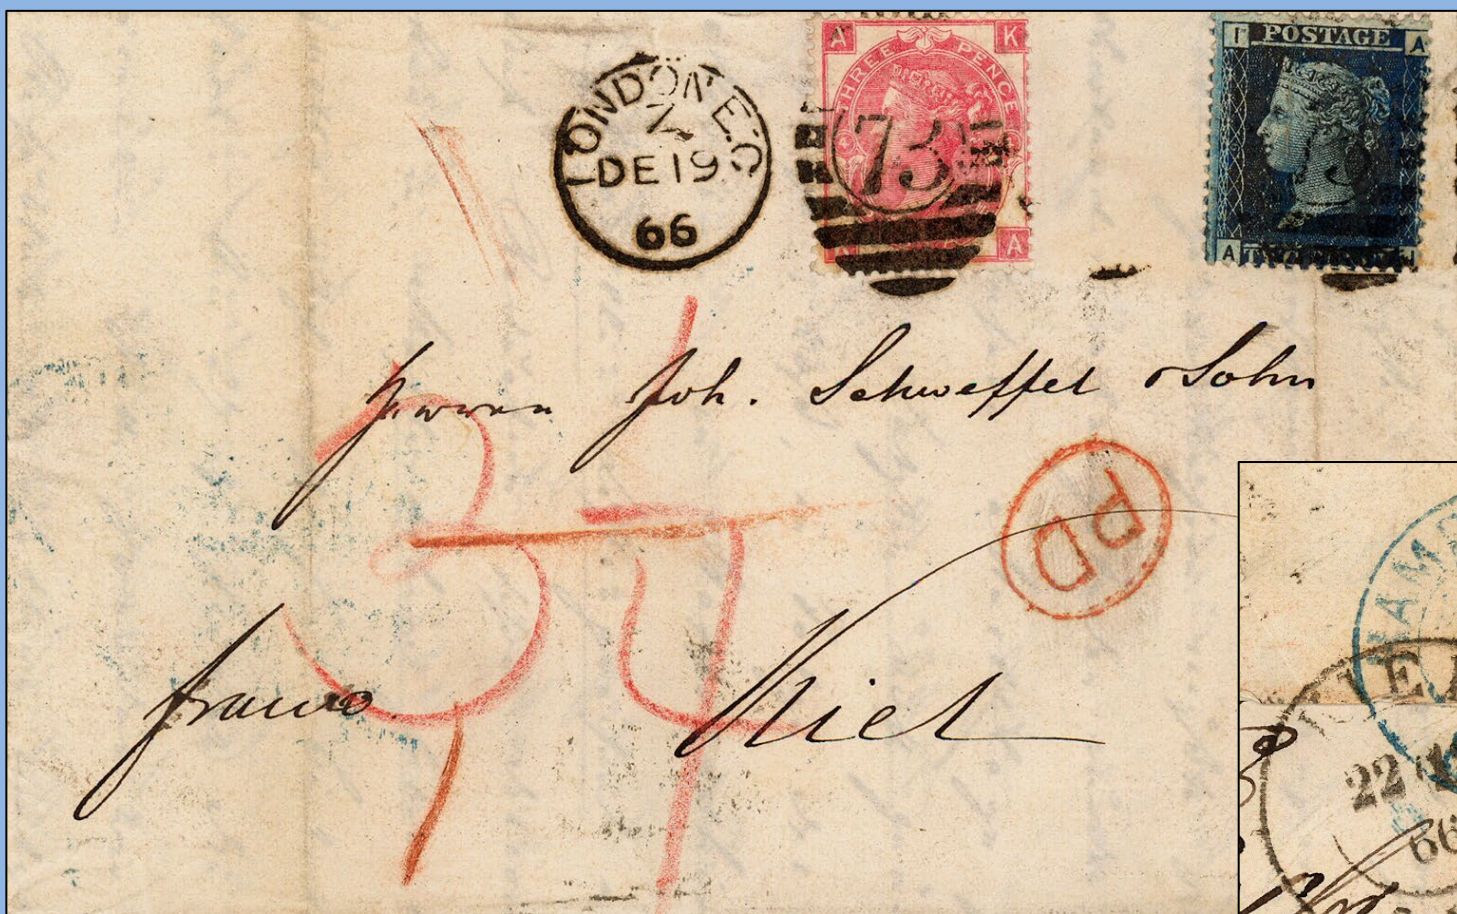 LONDON E.C
Z
DE 19
66
A K
THREE PENCE
73
A
I POSTAGE A
73
A
Herren Joh. Schweffel & Sohn
PD
franco
Kiel
KIEL
22
66